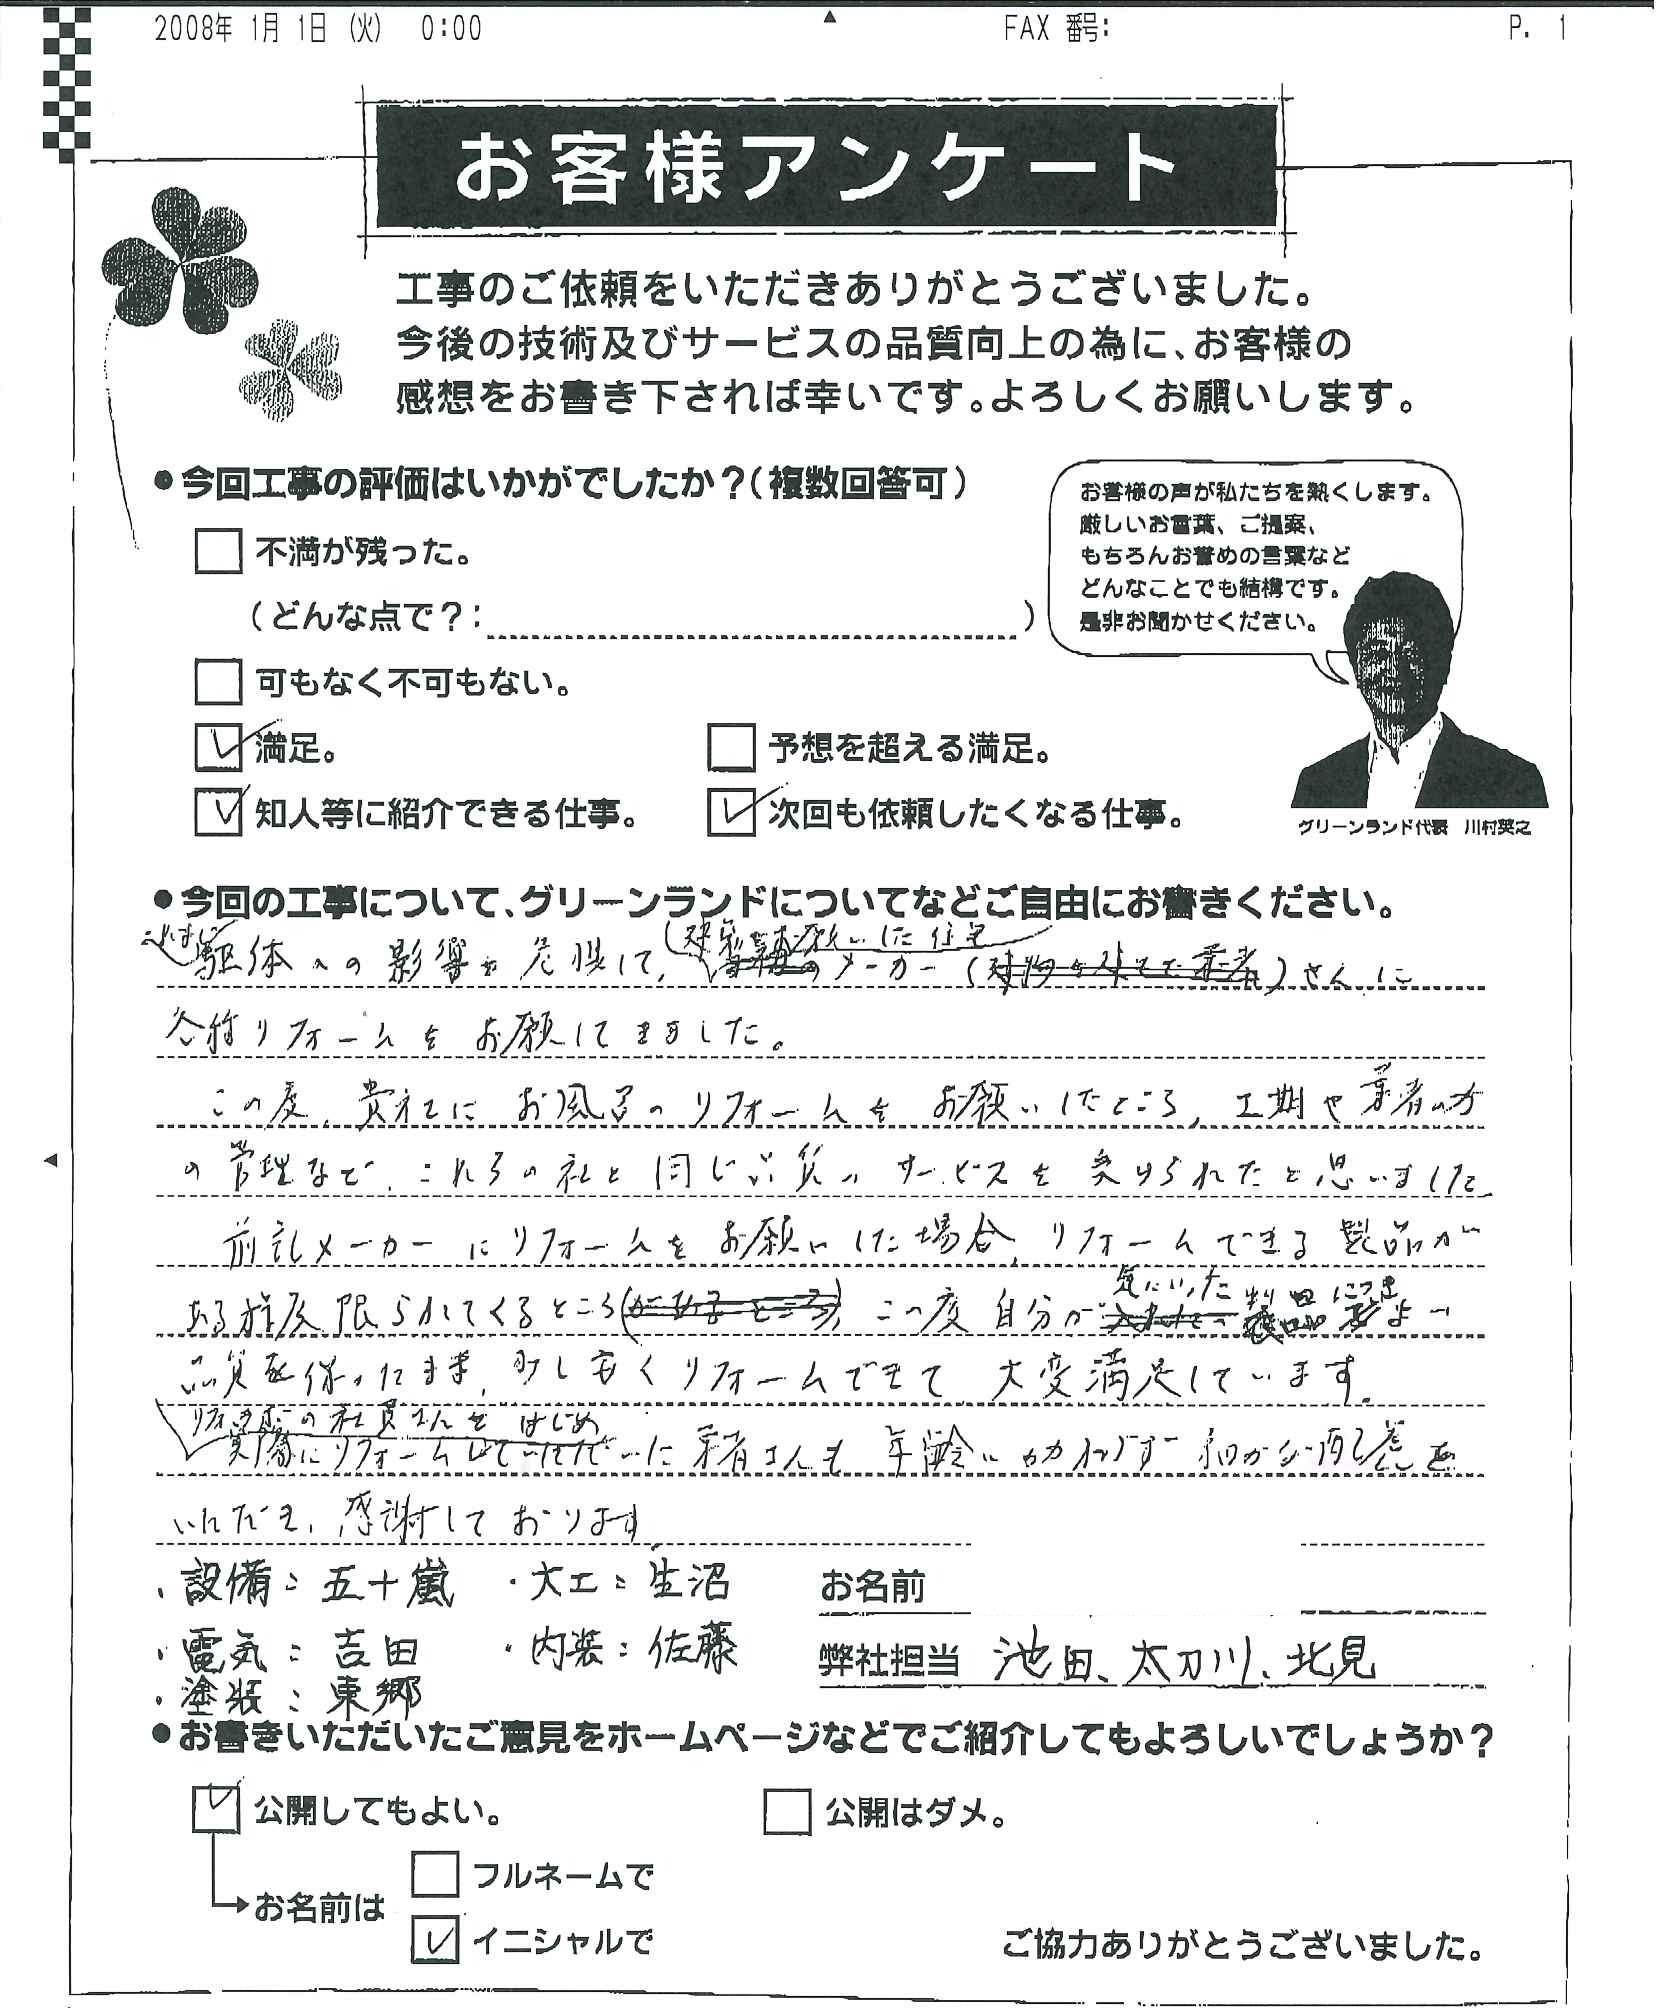 2008年 1月 1日 (火) 0:00 FAX 番号: P. 1
お客様アンケート
工事のご依頼をいただきありがとうございました。
今後の技術及びサービスの品質向上の為に、お客様の
感想をお書き下されば幸いです。よろしくお願いします。
●今回工事の評価はいかがでしたか?(複数回答可)
不満が残った。
(どんな点で?: )
可もなく不可もない。
満足。 予想を超える満足。
知人等に紹介できる仕事。 次回も依頼したくなる仕事。
お客様の声が私たちを熱くします。
厳しいお言葉、ご提案、
もちろんお誉めの言葉など
どんなことでも結構です。
是非お聞かせください。
グリーンランド代表 川村英之
●今回の工事について、グリーンランドについてなどご自由にお書きください。
これまで 建築をお願いした住宅
駆体への影響を危惧して、メーカー さんに
各種リフォームをお願いしてきました。
この度、貴社にお風呂のリフォームをお願いしたところ、工期や業者の方
の管理など、これらの社と同じ品質のサービスを受けられたと思いました
前記メーカーにリフォームをお願いした場合、リフォームできる製品が
気にいった
ある程度限られてくるところ この度自分が 製品
品質を保ったまま、少し安くリフォームできて、大変満足しています。
の社員さんをはじめ
実際にリフォームしていただいた業者さんも年齢にかかわらず細かな配慮を
いただき、感謝しております
・設備:五十嵐 ・大工:生沼 お名前
・電気:吉田 ・内装:佐藤 弊社担当 池田、太刀川、北見
・塗装:東郷
●お書きいただいたご意見をホームページなどでご紹介してもよろしいでしょうか?
公開してもよい。 公開はダメ。
お名前は フルネームで
イニシャルで
ご協力ありがとうございました。